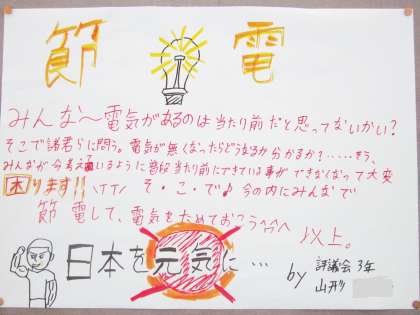 節電
みんな～電気があるのは当たり前だと思ってないかい？
そこで諸君らに問う。電気が無くなったらどうなるか分かるか？……そう、
みんなが今考えているように普段当たり前にできている事ができなくなって大変
困ります!!\(T T)/ そ・こ・で♪今の内にみんなで
節電して、電気をためておこう^^ 以上。
日本を元気に…
by 評議会3年
山形